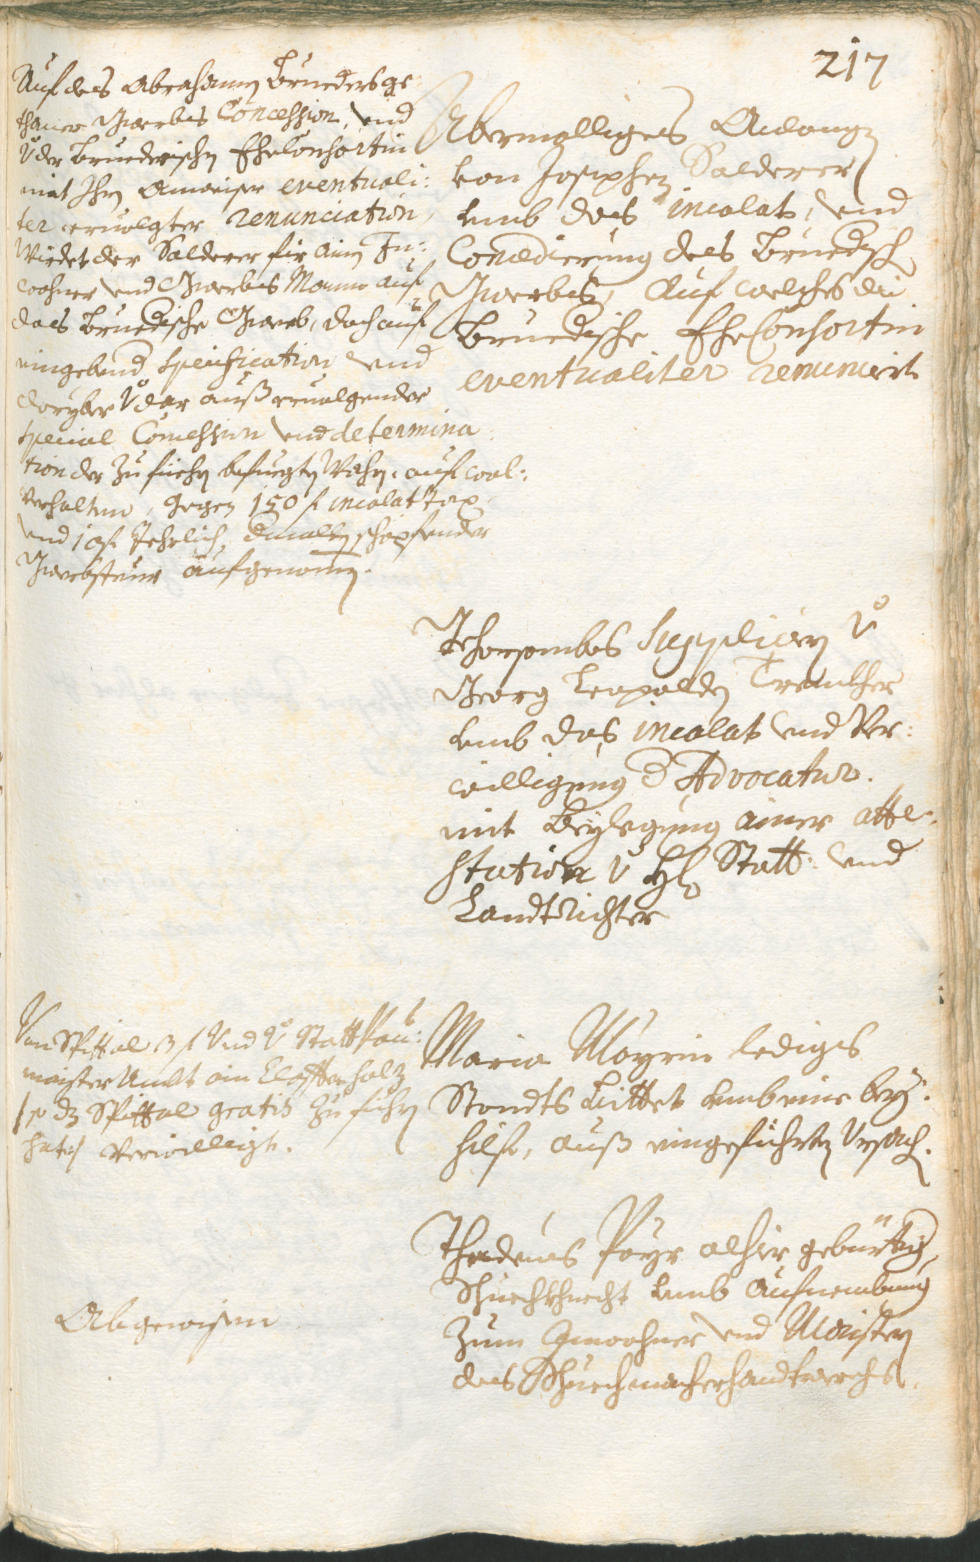 217
Auf des Abrahamen Brueders ge
thaner Gwerbs Concession, vnd
V der Bruederischen EheConsortin
mit Ihm Anweiser eventuali:
ter ervolgter renunciation,
Würdet der Salderer für ain In:
wohner vnd Gwerbs Mann auf
das Bruedische Gwerb, doch auf
eingebend Specification vnd
dariber V dar auß ervolgender
special Concession vnd determina
tion der zu füehren befuegten Wahren auf wol:
verhalten, gegen 150 f incolat Tax
vnd 10 f Jehrlich, schepfender
Gwerbsteur aufgenomen.
Abermalliges Anlangen
von Josephen Salderer
umb das incolat, vnd
Concedierung des Bruedisch
Gwerbs, Auf welches die
Bruedische EheConsortin
eventualiter renuncirt
Gehorsambes Suppliciern V
Georg Leopolden Trenkher
umb das incolat vnd Ver:
willigung d Advocatur.
mit Beylegung ainer atte:
station V H Statt: vnd
Landtrichter
Von Spittal 3 f Vnd V StattPau:
maister Ambt ain Clafter holz
so dz Spittal gratis zu füehren
hat verwilligt.
Maria Mayrin lediges
Standts bittet umb eine bey:
hilf, auß eingefüehrten Ursach.
Abgewisen
Thadeus Payr alhier gebürtig,
Schuechkhnecht umb Aufnembung
zum Inwohner vnd Maistern
des Schuechmacherhandtwerchs.